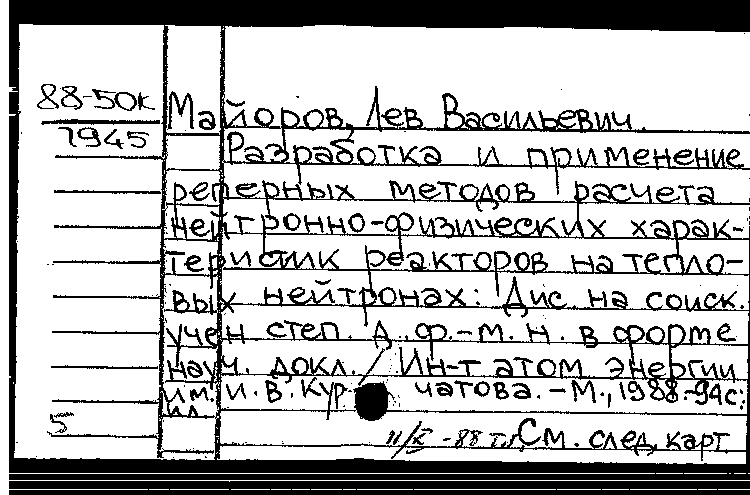 88-50к
1945
Майоров, Лев Васильевич.
Разработка и применение
реперных методов расчета
нейтронно-физических харак-
теристик реакторов на тепло-
вых нейтронах: Дис. на соиск.
учен степ. д. ф.-м. н. в форме
науч. докл. / Ин-т атом. энергии
им. И. В. Курчатова. - М., 1988. - 94с.:
ил.
5
См. след. карт.